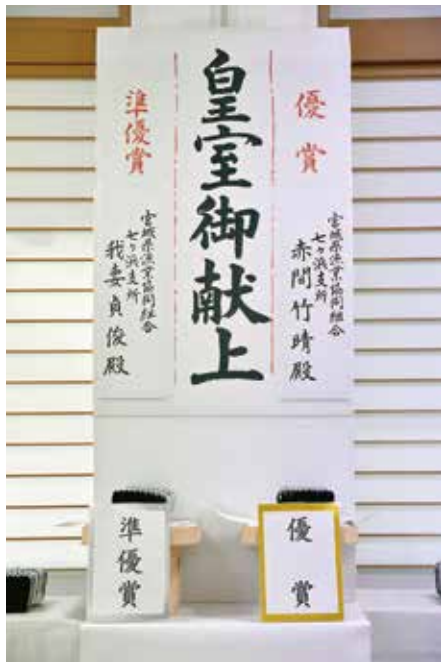 優賞
宮城県漁業協同組合
七ヶ浜支所
赤間竹晴殿
皇室御献上
準優賞
宮城県漁業協同組合
七ヶ浜支所
我妻貞俊殿
優賞
準優賞